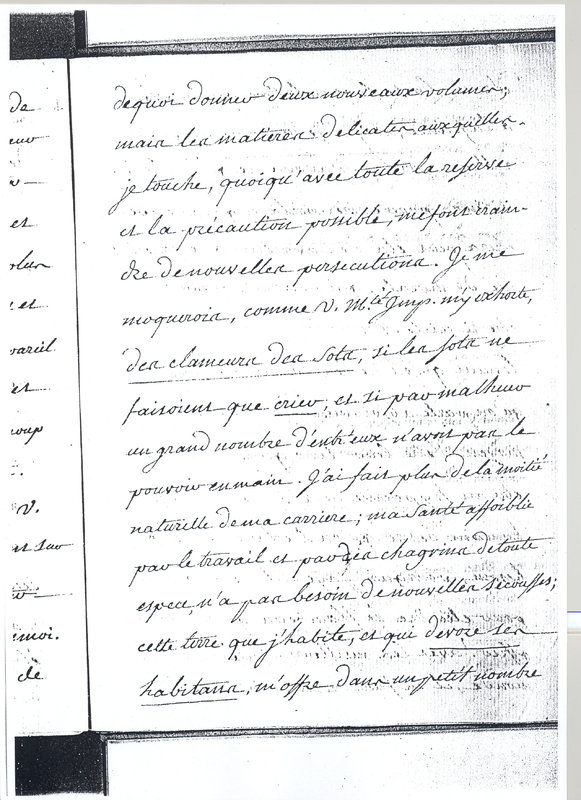 de
et
et
et
V.
de
dequoi donner deux nouveaux volumes;
mais les matieres delicates auxquelles
je touche, quoiqu'avec toute la reserve
et la précaution possible, me font crain-
dre de nouvelles persecutions. Je me
moquerois, comme V. M.té Imp. my exhorte,
des clameurs des Sots, si les sots ne
faisoient que crier, et si par malheur
un grand nombre d'entr'eux n'avoit pas le
pouvoir en main. J'ai fait plus de la moitié
naturelle de ma carriere; ma santé affoiblie
par le travail et par des chagrins de toute
espece, n'a pas besoin de nouvelles secousses;
cette terre que j'habite, et qui devore ses
habitans, m'offre dans un petit nombre